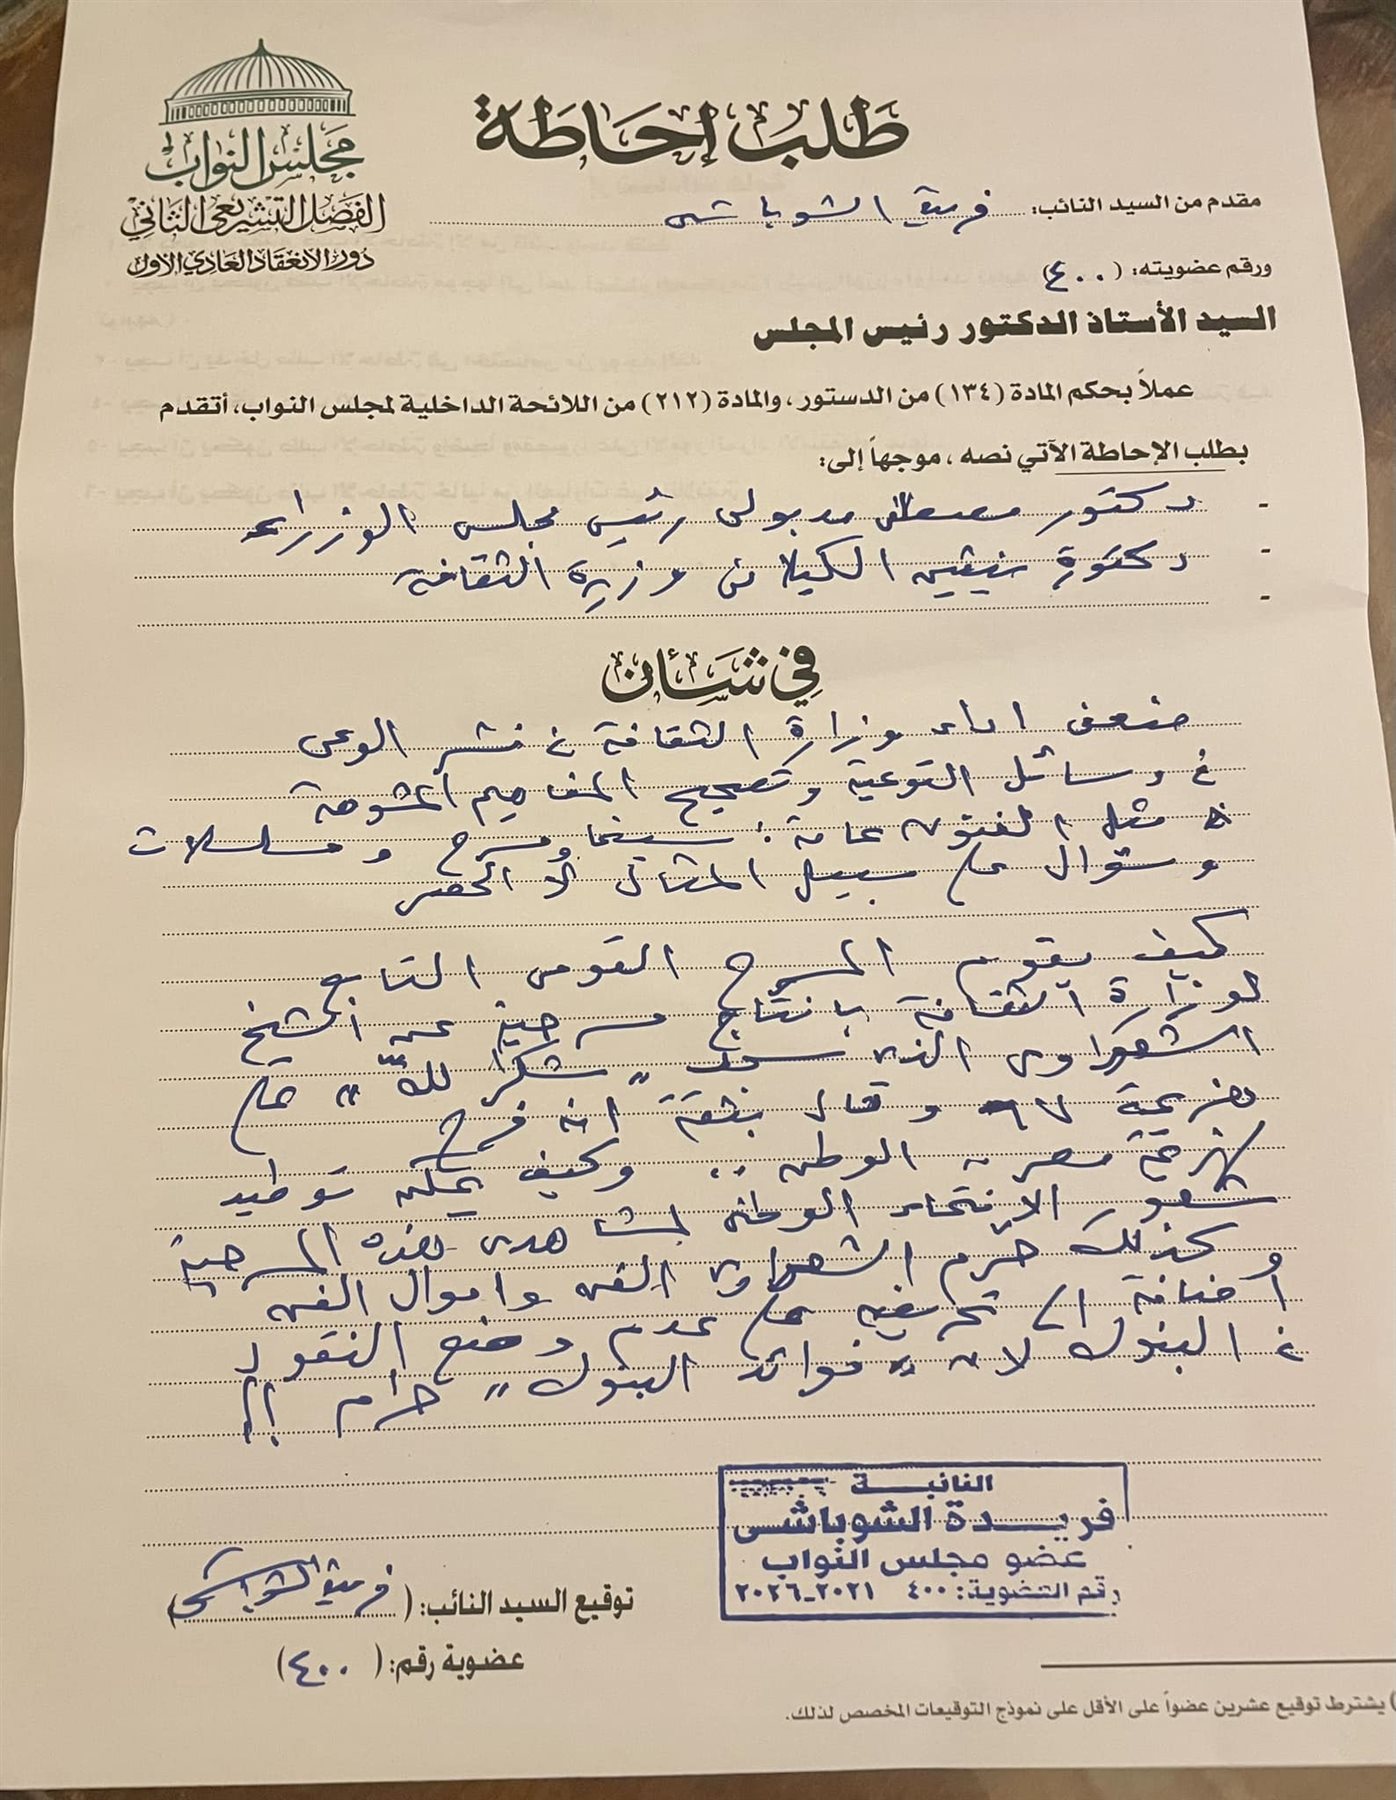 مجلس النواب
الفصل التشريعى الثانى
دور الانعقاد العادى الأول
طلب إحاطة
مقدم من السيد النائب: فريدة الشوباشى
ورقم عضويته: (٤٠٠)
السيد الأستاذ الدكتور رئيس المجلس
عملاً بحكم المادة (١٣٤) من الدستور، والمادة (٢١٢) من اللائحة الداخلية لمجلس النواب، أتقدم
بطلب الإحاطة الآتي نصه، موجهاً إلى:
- دكتور مصطفى مدبولى رئيس مجلس الوزراء
- دكتورة نيفين الكيلانى وزيرة الثقافة
-
في شأن
ضعف اداء وزارة الثقافة فى نشر الوعى
فى وسائل التوعية وتصحيح المفاهيم المشوهة
مثل الفنون عامة: سينما ومسرح ومسلسلات
وسؤال على سبيل المثال لا الحصر
كيف يقوم المسرح القومى التابع
لوزارة الثقافة بانتاج مسرحية عن الشيخ
الشعراوى الذى سجد "شكرا للّه" على
هزيمة ٦٧ وقال بثقة انه فرح
لهزيمة مصر الوطن .. وكيف يمكن توطيد
شعور الانتماء الوطنى لمشاهدى هذه المسرحية
وكذلك حرّم الشعراوى الفن واموال الفن
اضافة الى تحريضه على عدم وضع النقود
فى البنوك لان "فوائد البنوك" حرام !!
النائبة
فريدة الشوباشى
عضو مجلس النواب
رقم العضوية: ٤٠٠ ٢٠٢١-٢٠٢٦
توقيع السيد النائب: (فريدة الشوباشى)
عضوية رقم: (٤٠٠)
) يشترط توقيع عشرين عضواً على الأقل على نموذج التوقيعات المخصص لذلك.